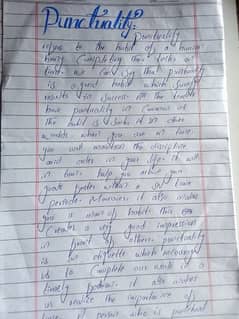 Punctuality:
Punctuality
refers to the habit of a human
being completing their tasks on
time. we can say that punctuality
is a good habit which
results in success. All the
have punctuality in common as
the habit is such. if in other
words, when you are on time
you will maintain the discipline
and order in your life. It will
in turn help you achieve you
goals faster within a set time
periods. Moreover, it also makes
you a man of habit. This
Creates a very good impression
in front of others. punctuality
is an etiquette which
is to complete our work in a
timely pattern. it also makes
us notice the importance of
time. A person who is punctual